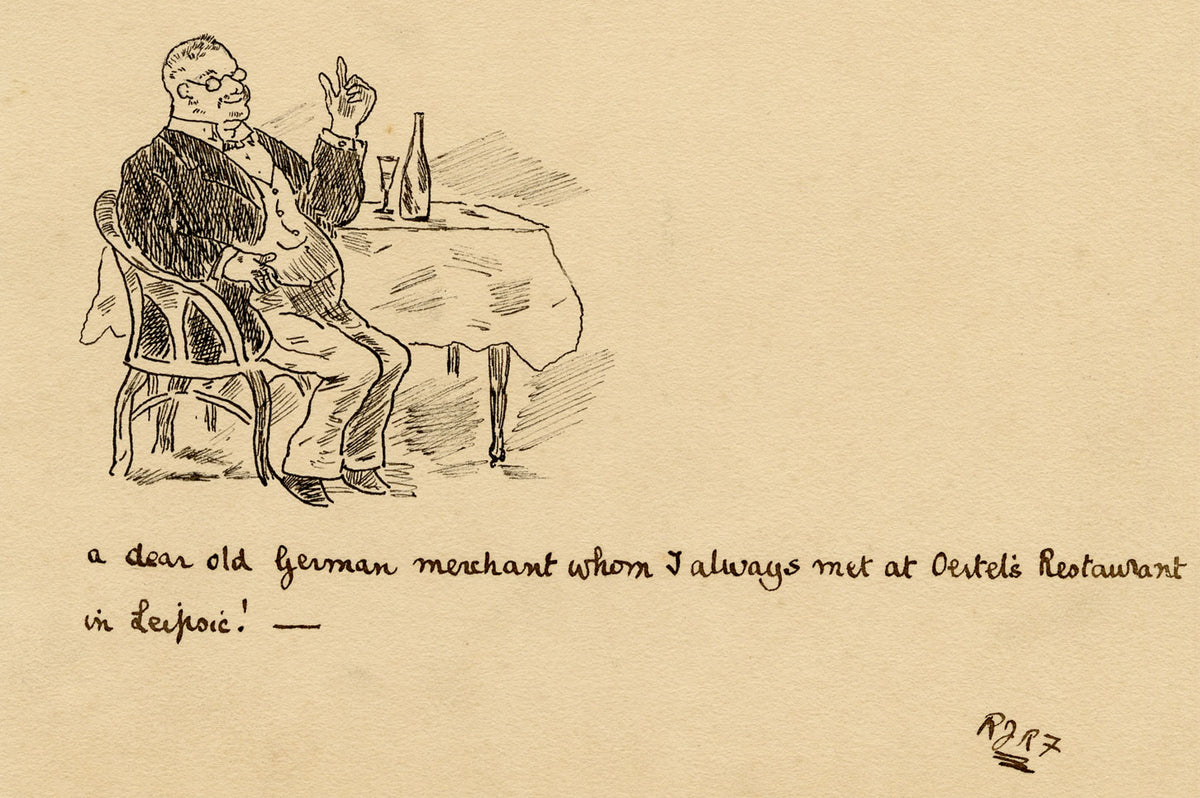 a dear old German merchant whom I always met at Oertel's Restaurant
in Leipsic! —